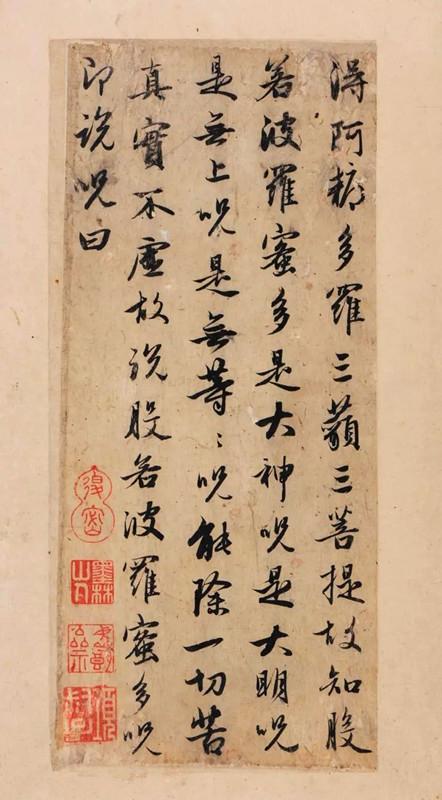 得阿耨多羅三藐三菩提故知般
若波羅蜜多是大神呪是大明呪
是無上呪是無等〻呪能除一切苦
真實不虛故說般若波羅蜜多呪
即說呪曰